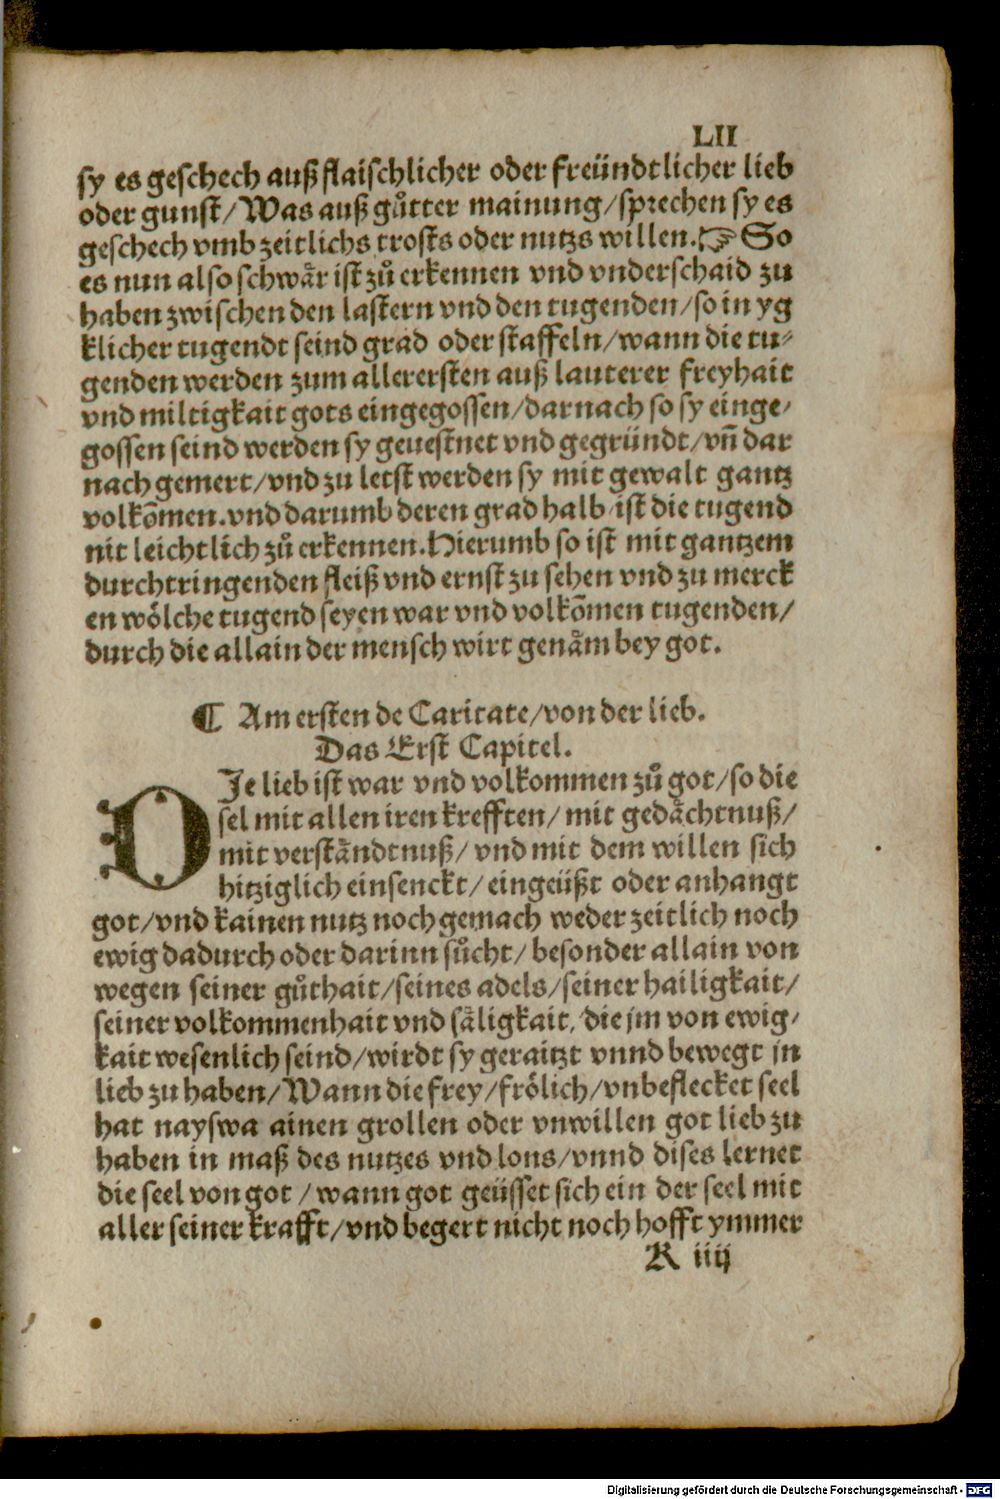 LII
sy es geschech auß flaischlicher oder freündtlicher lieb
oder gunst/Was auß gůtter mainung/sprechen sy es
geschech vmb zeitlichs trosts oder nutzs willen.☞So
es nun also schwaͤr ist zů erkennen vnd vnderschaid zu
haben zwischen den lastern vnd den tugenden/so in yg
klicher tugendt seind grad oder staffeln/wann die tu-
genden werden zum allerersten auß lauterer freyhait
vnd miltigkait gots eingegossen/darnach so sy einge-
gossen seind werden sy geuestnet vnd gegründt/vñ dar
nach gemert/vnd zu letst werden sy mit gewalt gantz
volkōmen.vnd darumb deren grad halb ist die tugend
nit leichtlich zů erkennen.Hierumb so ist mit gantzem
durchtringenden fleiß vnd ernst zu sehen vnd zu merck
en woͤlche tugend seyen war vnd volkōmen tugenden/
durch die allain der mensch wirt genaͤm bey got.
¶ Am ersten de Caritate/von der lieb.
Das Erst Capitel.
DJe lieb ist war vnd volkommen zů got/so die
sel mit allen iren krefften/mit gedaͤchtnuß/
mit verstaͤndtnuß/vnd mit dem willen sich
hitziglich einsenckt/eingeüßt oder anhangt
got/vnd kainen nutz noch gemach weder zeitlich noch
ewig dadurch oder darinn sůcht/besonder allain von
wegen seiner gůthait/seines adels/seiner hailigkait/
seiner volkommenhait vnd saͤligkait/die jm von ewig-
kait wesenlich seind/wirdt sy geraitzt vnnd bewegt jn
lieb zu haben/Wann die frey/froͤlich/vnbeflecket seel
hat nayswa ainen grollen oder vnwillen got lieb zu
haben in maß des nutzes vnd lons/vnnd dises lernet
die seel von got/wann got geüsset sich ein der seel mit
aller seiner krafft/vnd begert nicht noch hofft ymmer
K iiij
Digitalisierung gefördert durch die Deutsche Forschungsgemeinschaft - DFG